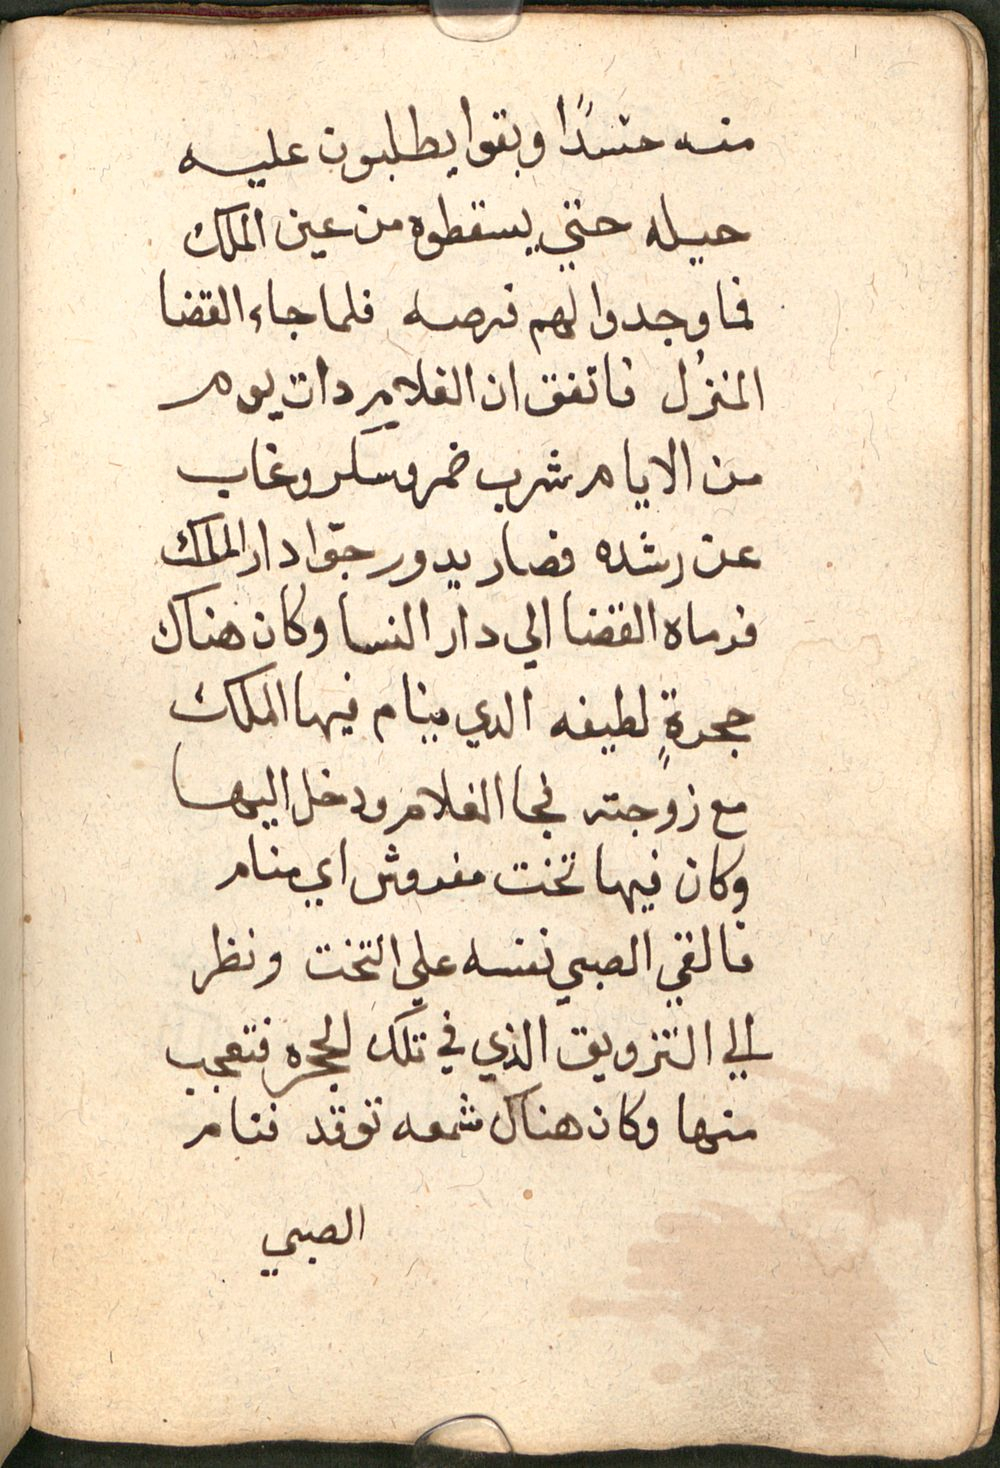 منه حسدًا وبقوا يطلبون عليه
حيله حتي يسقطوه من عين الملك
فما وجدوا لهم فرصه فلما جاء القضا
المنزل فاتفق ان الغلام دات يوم
من الايام شرب خمر وسكر وغاب
عن رشده فصار يدور جوّا دار الملك
فرماه القضا الي دار النسا وكان هناك
حجرةٍ لطيفه الدي ينام فيها الملك
مع زوجته فجا الغلام ودخل اليها
وكان فيها تخت مفروش اي منام
فالقي الصبي نفسه علي التخت ونظر
الي التزويق الذي في تلك الحجره فتعجب
منها وكان هناك شمعه توقد فنام
الصبي